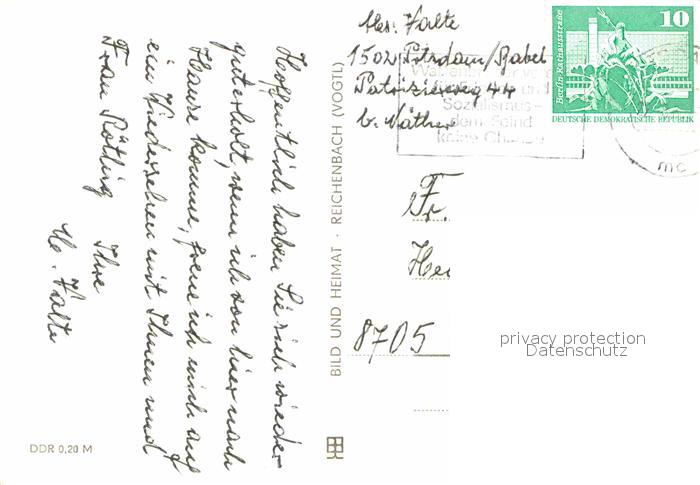 Hoffentlich haben Sie sich wieder
gut erholt, wenn ich von hier nach
Hause komme, freue ich mich auf
ein Wiedersehen mit Ihnen und
Frau Rötling
Ihre
M. Valte
DDR 0,20 M
BILD UND HEIMAT · REICHENBACH (VOGTL)
Valte
1502 Potsdam/Babel
Patrizierweg 44
b. Näther
Sozialismus -
dem Feind
keine Chance
Berlin, Rathausstraße
10
DEUTSCHE DEMOKRATISCHE REPUBLIK
Fr.
8705
privacy protection
Datenschutz